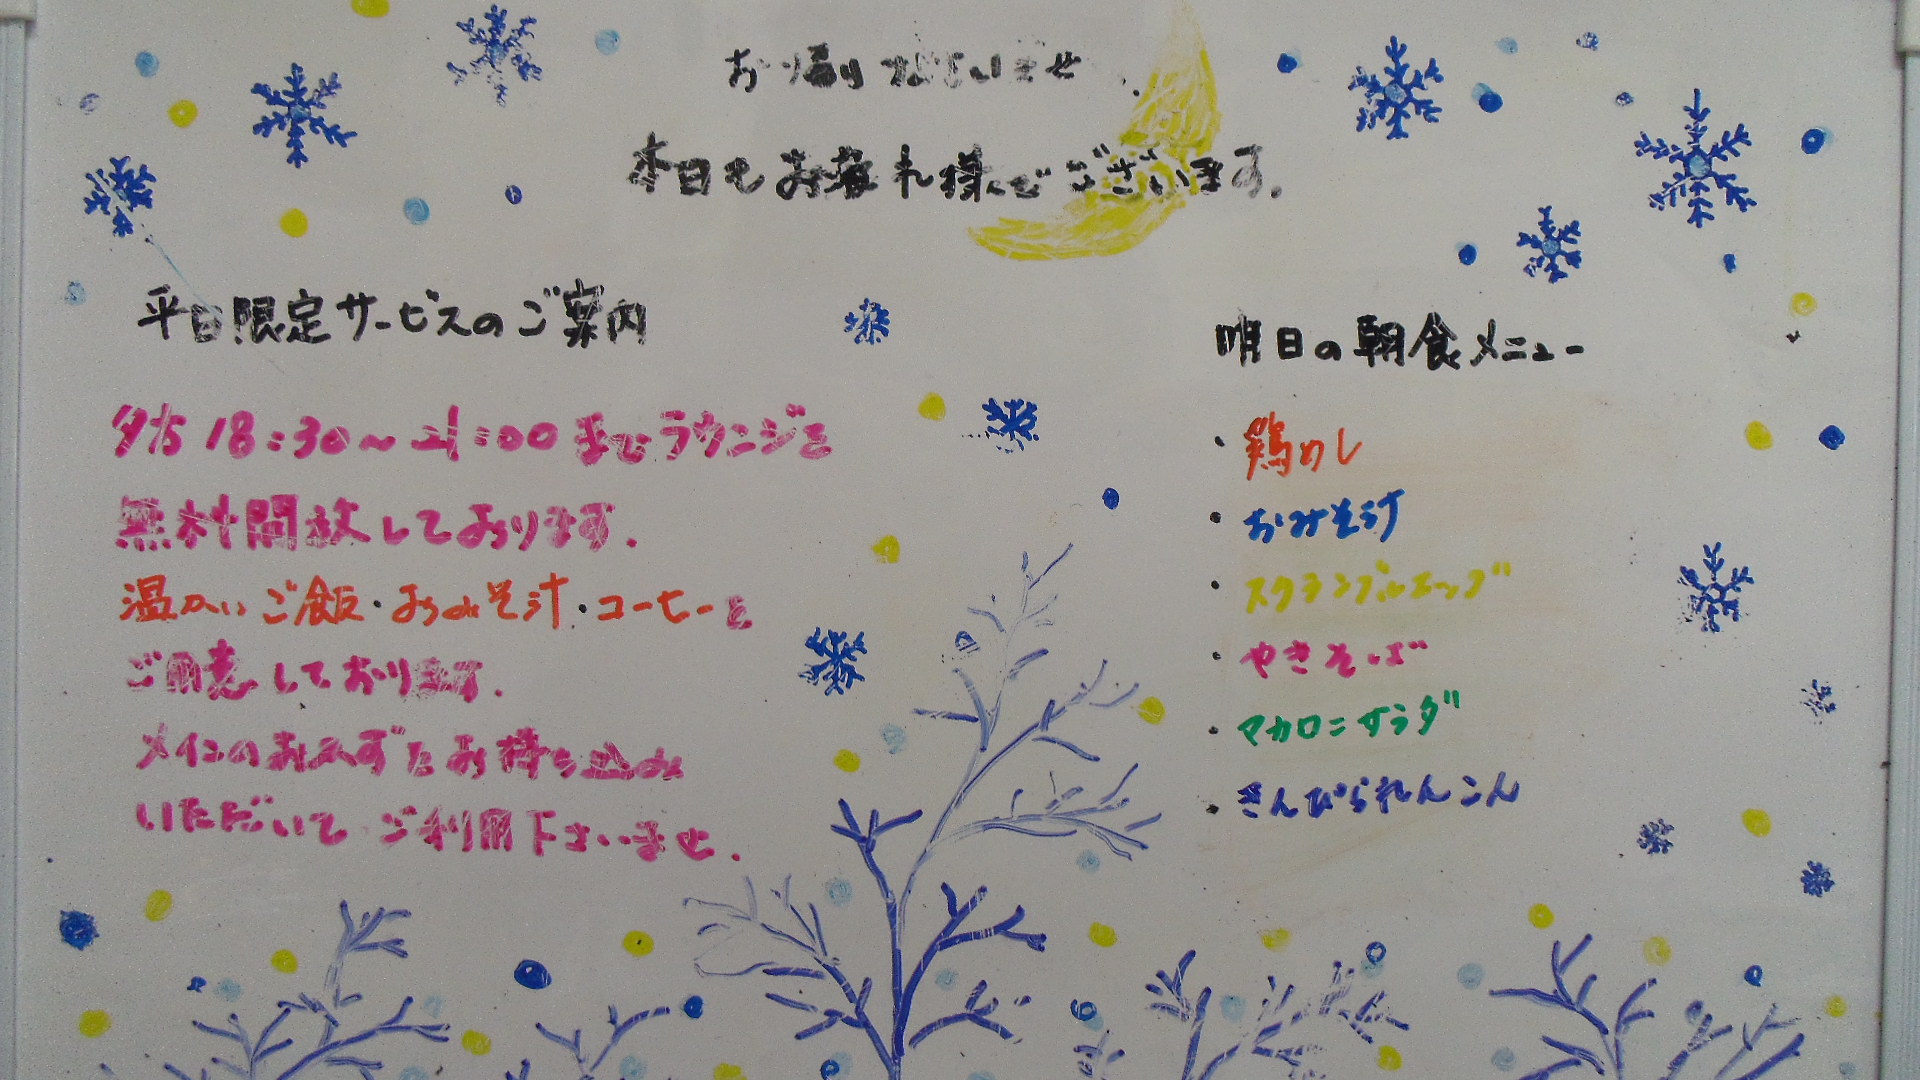 お帰りなさいませ
本日もお疲れ様でございます.
平日限定サービスのご案内
夕方18:30～21:00までラウンジを
無料開放しております.
温かいご飯・おみそ汁・コーヒーを
ご用意しております.
メインのおかずをお持ち込み
いただいてご利用下さいませ.
明日の朝食メニュー
・鶏めし
・おみそ汁
・スクランブルエッグ
・やきそば
・マカロニサラダ
・きんぴられんこん